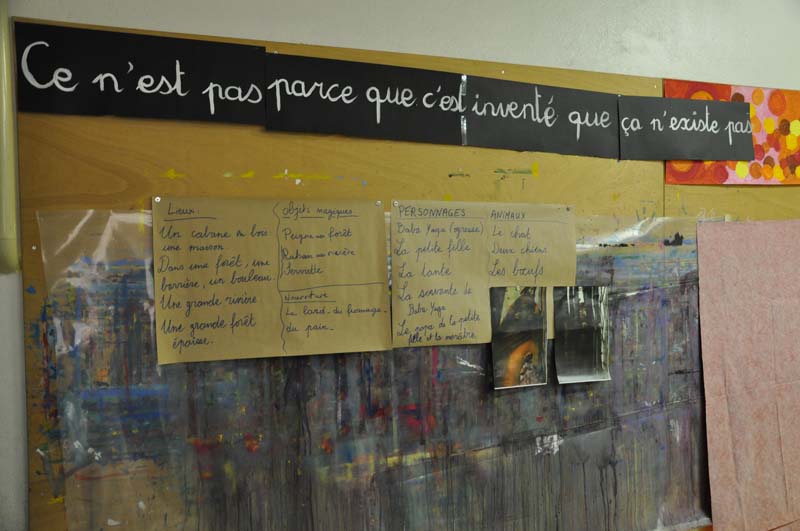 Ce n'est pas parce que c'est inventé que ça n'existe pas
Lieux.
Un cabane en bois
une maison.
Dans une forêt, une
barrière, un bouleau.
Une grande rivière
Une grande forêt
épaisse.
Objets magiques
Peigne forêt
Ruban rivière
Serviette
Nourriture
Le lard - du fromage -
du pain -
PERSONNAGES
Baba Yaga (ogresse)
La petite fille
La tante
La servante de
Baba Yaga
Le papa de la petite
fille et la marâtre.
ANIMAUX
Le chat
Deux chiens
Les bœufs